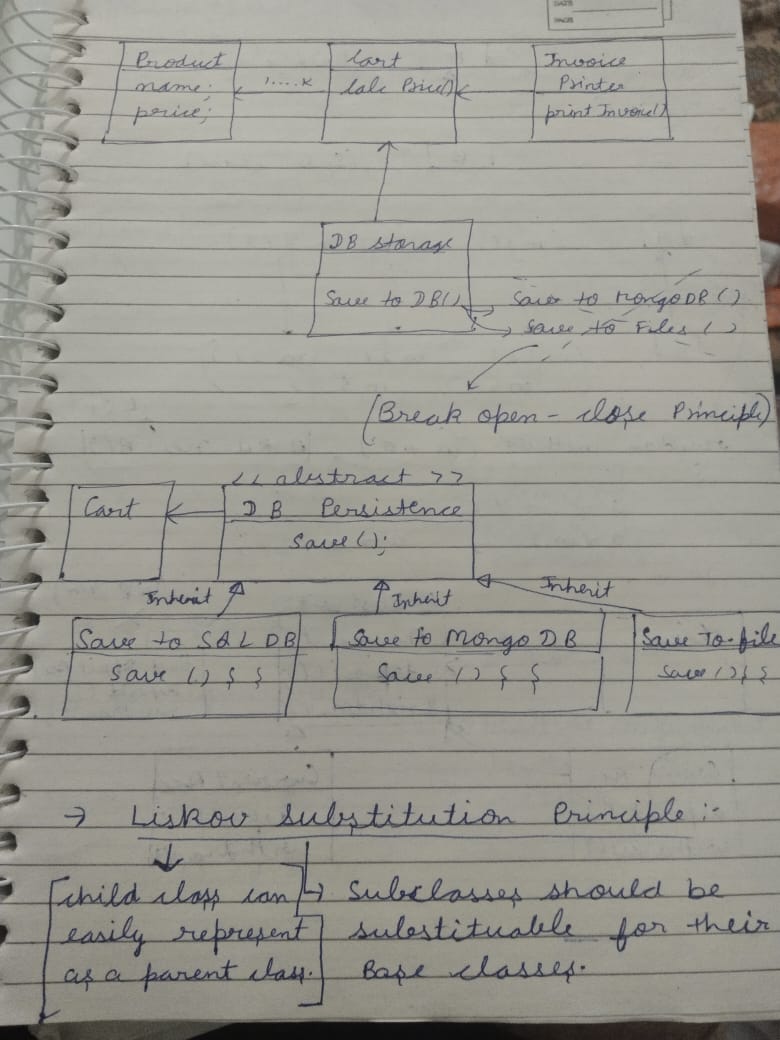 DATE
PAGE
Product
name;
price;
1....*
Cart
Calc Price()
Invoice
Printer
print Invoice()
DB storage
Save to DB()
Save to MongoDB ()
Save to Files ()
(Break open - close Principle)
<< abstract >>
Cart
DB Persistence
Save();
Inherit
Inherit
Inherit
Save to SQL DB
Save () { }
Save to Mongo DB
Save () { }
Save To-file
Save () { }
→ Liskov Substitution Principle :-
child class can
easily represent
as a parent class.
Subclasses should be
substituable for their
Base classes.